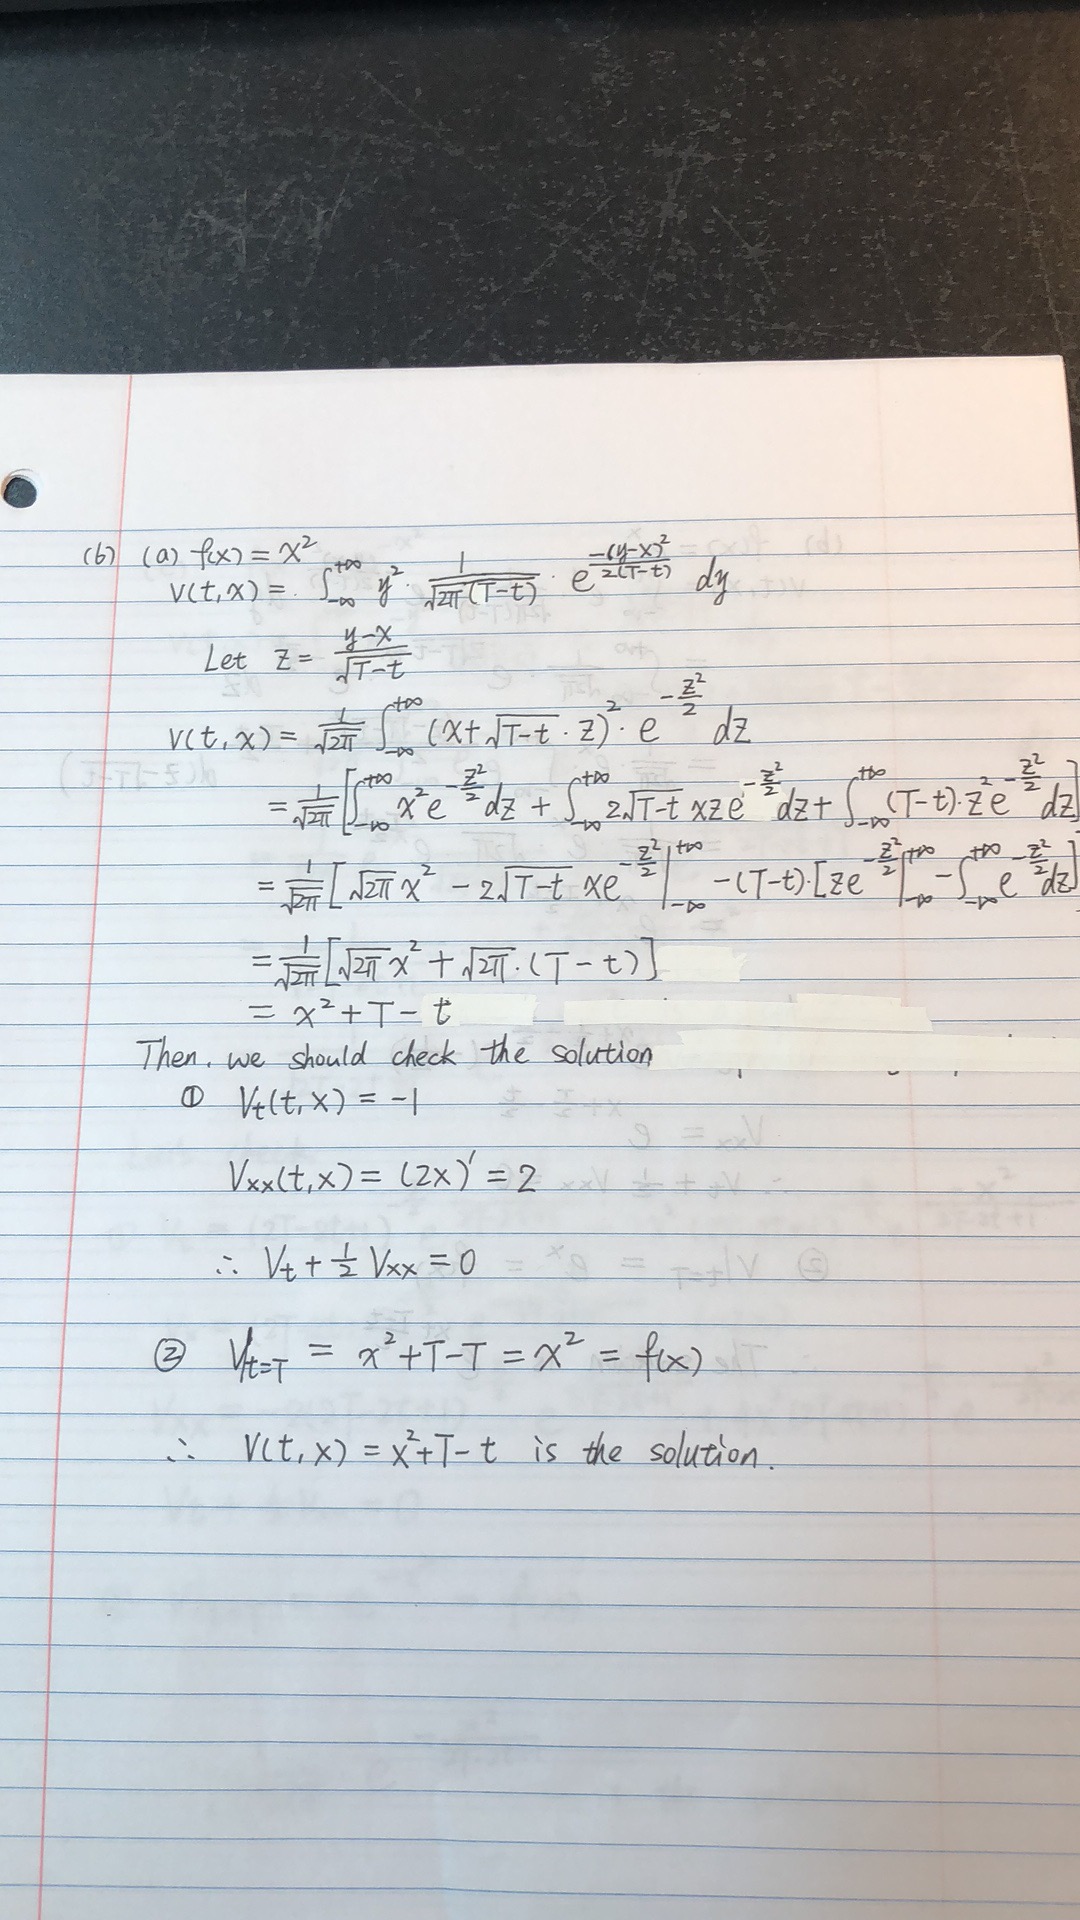 (b) (a) f(x) = x²
V(t,x) = ∫_{-∞}^{+∞} y² · 1/√(2π(T-t)) · e^{-(y-x)²/2(T-t)} dy
Let z = (y-x)/√(T-t)
V(t,x) = 1/√(2π) ∫_{-∞}^{+∞} (x+√(T-t)·z)² · e^{-z²/2} dz
= 1/√(2π) [∫_{-∞}^{+∞} x² e^{-z²/2} dz + ∫_{-∞}^{+∞} 2√(T-t) xz e^{-z²/2} dz + ∫_{-∞}^{+∞} (T-t)·z² e^{-z²/2} dz]
= 1/√(2π) [√(2π) x² - 2√(T-t) x e^{-z²/2} |_{-∞}^{+∞} - (T-t)·[z e^{-z²/2} |_{-∞}^{+∞} - ∫_{-∞}^{+∞} e^{-z²/2} dz]
= 1/√(2π) [√(2π) x² + √(2π)·(T-t)]
= x² + T - t
Then, we should check the solution
① V_t(t,x) = -1
V_xx(t,x) = (2x)' = 2
∴ V_t + ½ V_xx = 0
② V|_{t=T} = x²+T-T = x² = f(x)
∴ V(t,x) = x²+T-t is the solution.